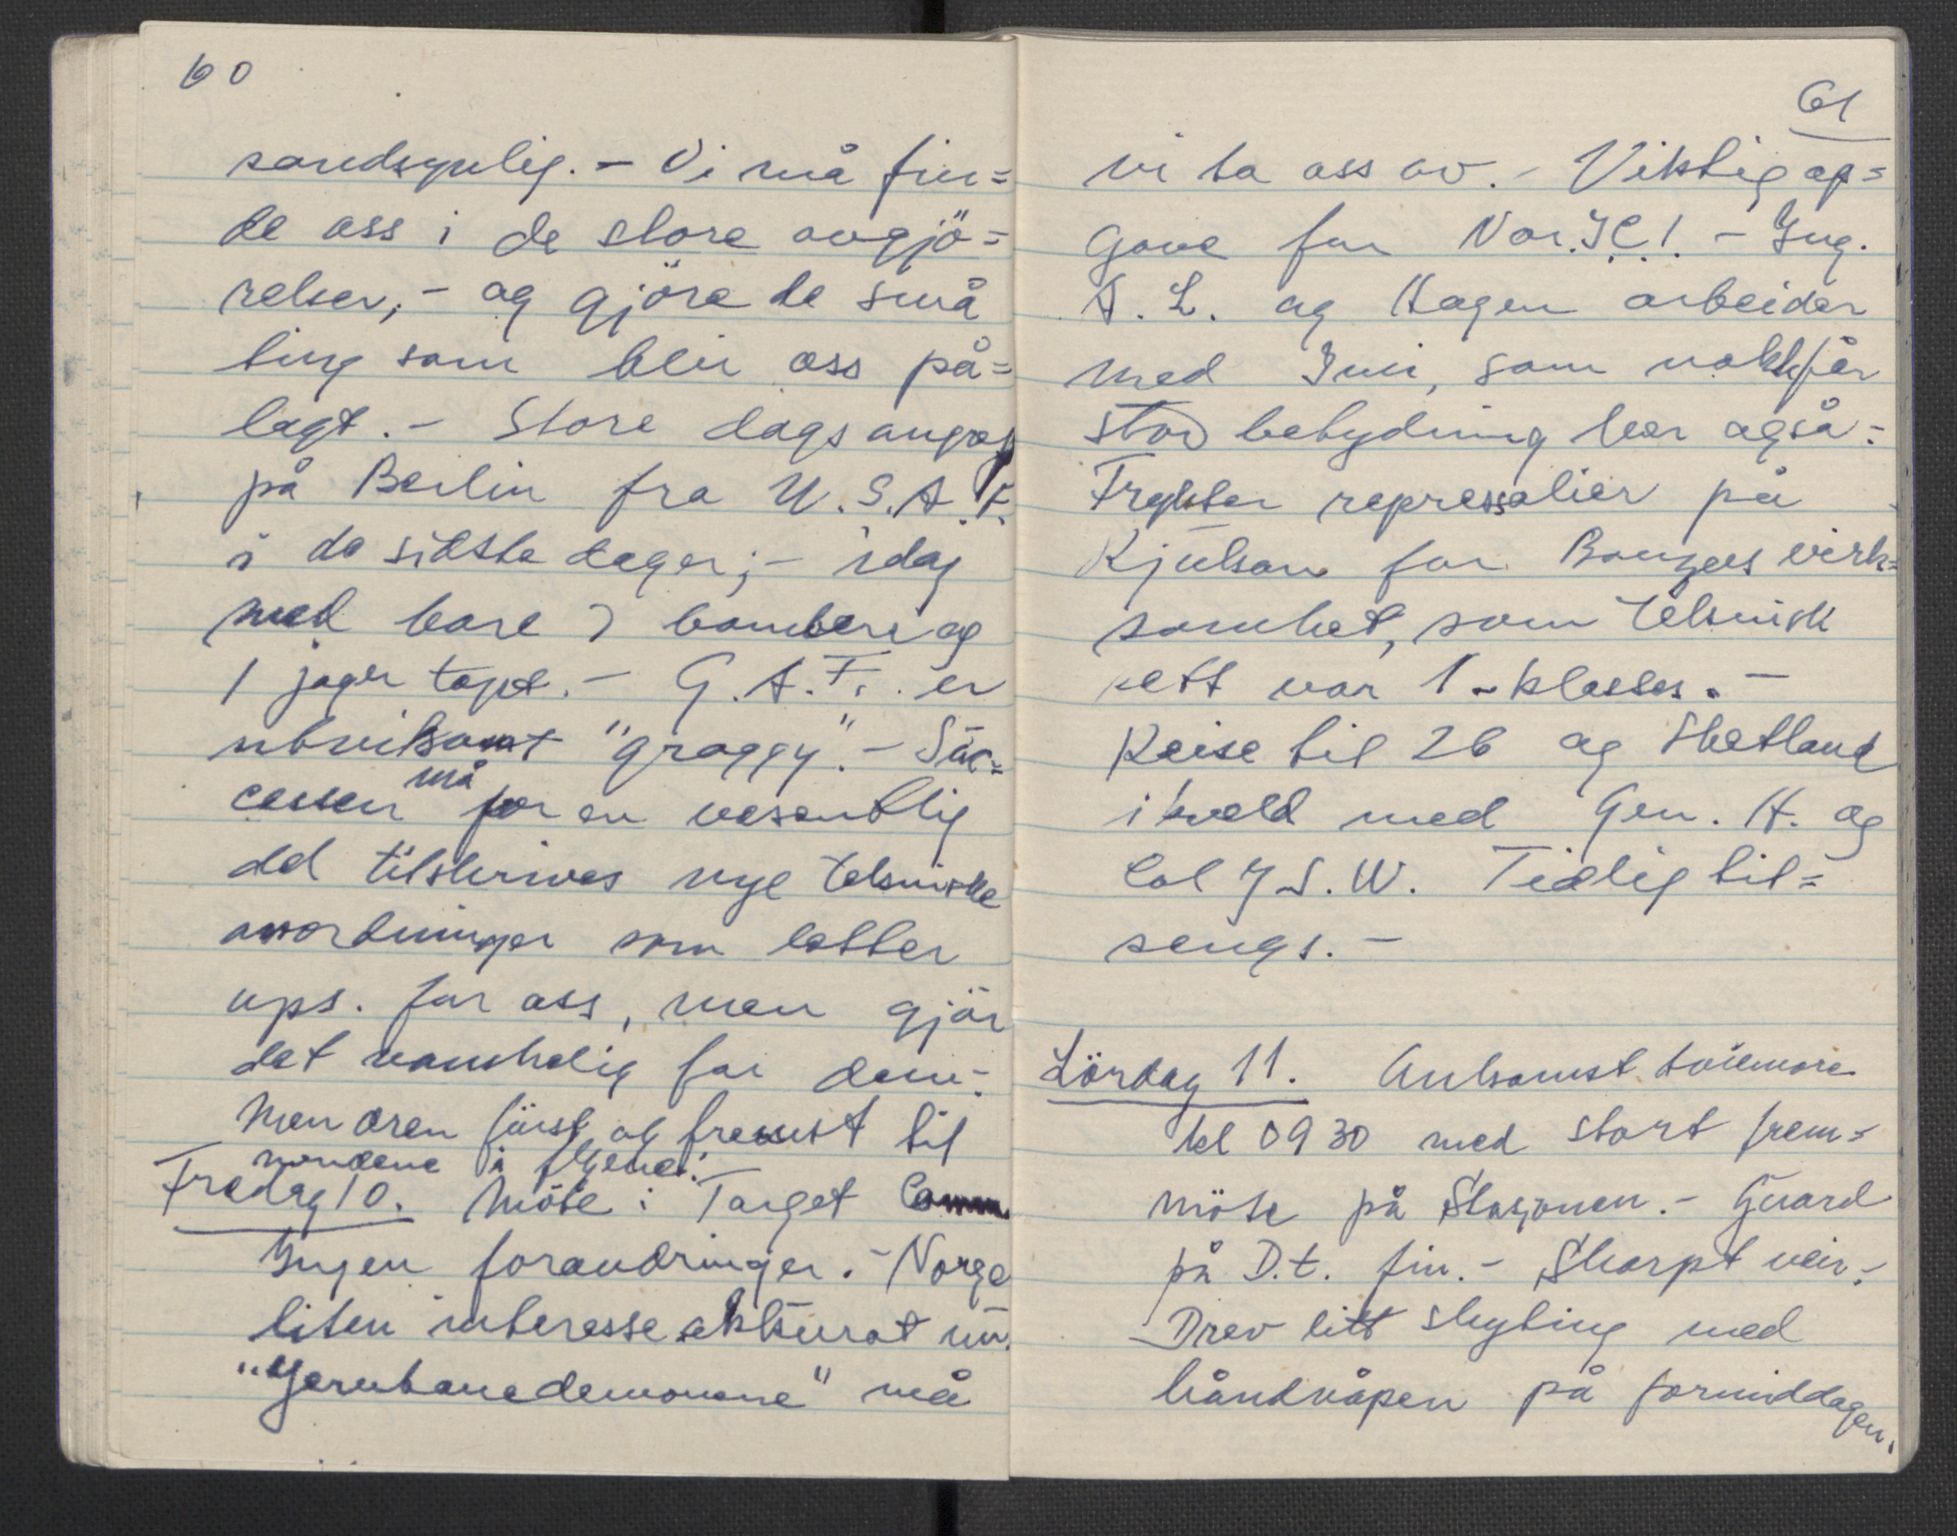 60
sandsynlig. - Vi må fin=
de oss i de store avgjö=
relser, - og gjöre de små
ting som blir oss på=
lagt. - Store dagsangrep
på Berlin fra U.S.A.F.
i de sidste dager; - idag
med bare 7 bombere og
1 jager tapt. - G.A.F. er
utvilsomt "groggy". - Suc=
cessen må for en vesentlig
del tilskrives nye tekniske
anordninger som letter
ops. for oss, men gjör
det vanskelig for dem. -
Men æren först og fremst til
mændene i flyene! -
Fredag 10. Möte i Target Comm.
Ingen forandringer. - Norge
liten interesse akkurat nu.
"Jernbanedemonene" må
61
vi ta oss av. - Viktig op=
gave for Nor.I.C.! - Ing.
A. L. og Hagen arbeider
med Juni, som nokk får
stor betydning her også. -
Frykter repressalier på
Kjelson for Bonzos virk=
somhet, som teknisk
sett var 1-klasses. -
Reise til 26 og Shetland
ikveld med Gen. H. og
Col J.S.W. Tidlig til=
sengs. -
Lördag 11. Ankomst Aviemore
kl 0930 med stort frem=
möte på Stasjonen. - Guard
på D.t. fin. - Skarpt veir. -
Drev litt skyting med
håndvåpen på formiddagen.